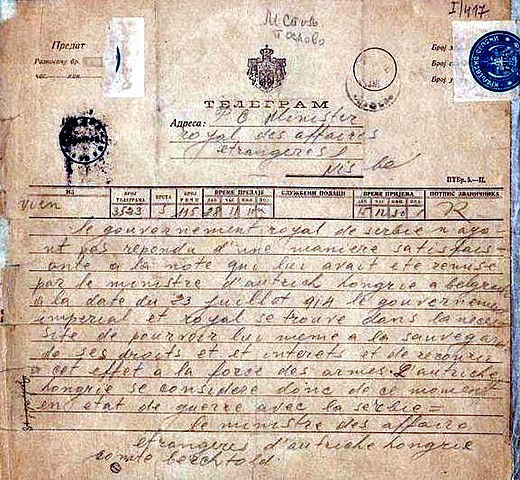 I/417
М Стил
Предат
ТЕЛЕГРАМ
Адреса: P C Minister
royal des affaires
etrangeres
Nis
ИЗ
БРОЈ ТЕЛЕГРАМА
ВРСТА
БРОЈ РЕЧИ
ВРЕМЕ ПРЕДАЈЕ
СЛУЖБЕНИ ПОДАЦИ
ВРЕМЕ ПРИЈЕМА
ПОТПИС ЗВАНИЧНИКА
vien 3523 5 115 28 11
le gouvernement royal de serbie n ayant
pas repondu d'une maniere satisfais-
ante a la note qui lui avait ete remise
par le ministre d'autrich hongrie a belgrade
a la date du 23 juillot 914 le gouvernement
imperial et royal se trouve dans la neces
site de pourvoir lui meme a la sauvegarde
de ses droits et et interets et de recourir
a cet effet a la force des armes L'autriche
hongrie se considere donc de ce moment
en etat de guerre avec la serbie =
le ministre des affaire
etrangeres d'autriche hongrie
comte berchtold